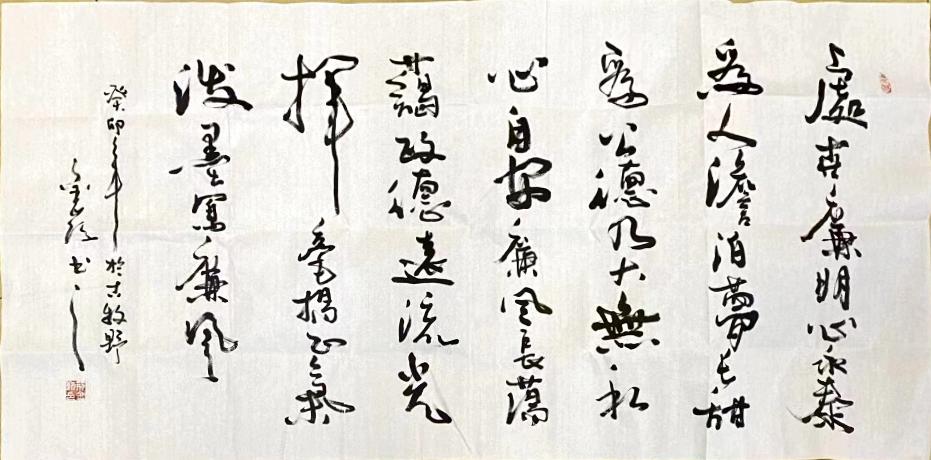 處世廉明心永泰
為人澹泊夢長甜
為公德乃大無私
心自安廉風長蕩
蕩政德遠流光
揮毫揚正氣
潑墨寫廉風
癸卯之年於古牧野
書